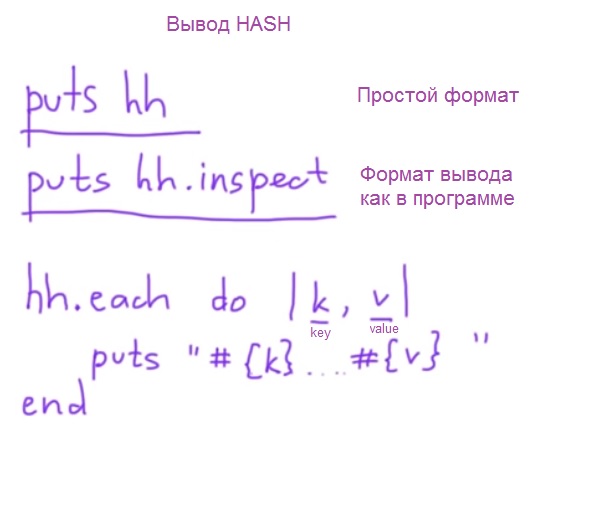 Вывод HASH
puts hh
Простой формат
puts hh.inspect
Формат вывода
как в программе
hh.each do |k, v|
key value
puts "#{k}....#{v} "
end